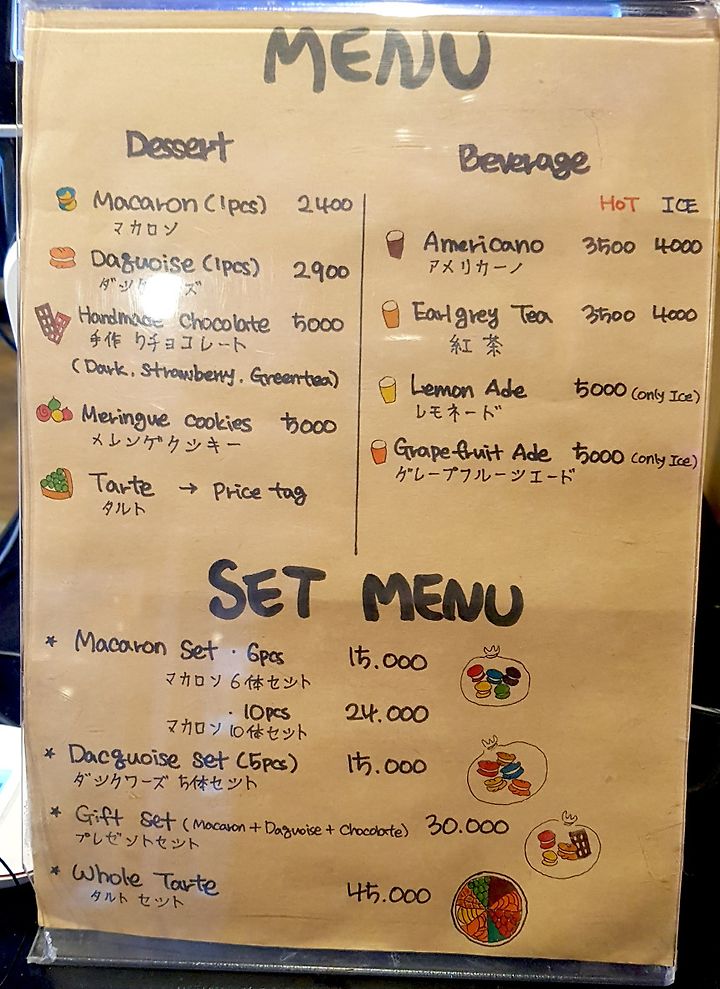 MENU
Dessert
Macaron (1pcs) 2400
マカロン
Daquoise (1pcs) 2900
Handmade chocolate 5000
手作りチョコレート
(Dark. Strawberry. Greentea)
Meringue cookies 5000
メレンゲクッキー
Tarte → Price tag
タルト
Beverage
HOT ICE
Americano 3500 4000
アメリカーノ
Earlgrey Tea 3500 4000
紅茶
Lemon Ade 5000 (only Ice)
レモネード
Grapefruit Ade 5000 (only Ice)
グレープフルーツエード
SET MENU
* Macaron Set · 6pcs 15.000
マカロン 6体セット
· 10pcs 24.000
マカロン 10体セット
* Dacquoise set (5pcs) 15.000
ダックワーズ 5体セット
* Gift set (Macaron + Daquoise + Chocolate) 30.000
プレゼントセット
* Whole Tarte 45.000
タルト セット